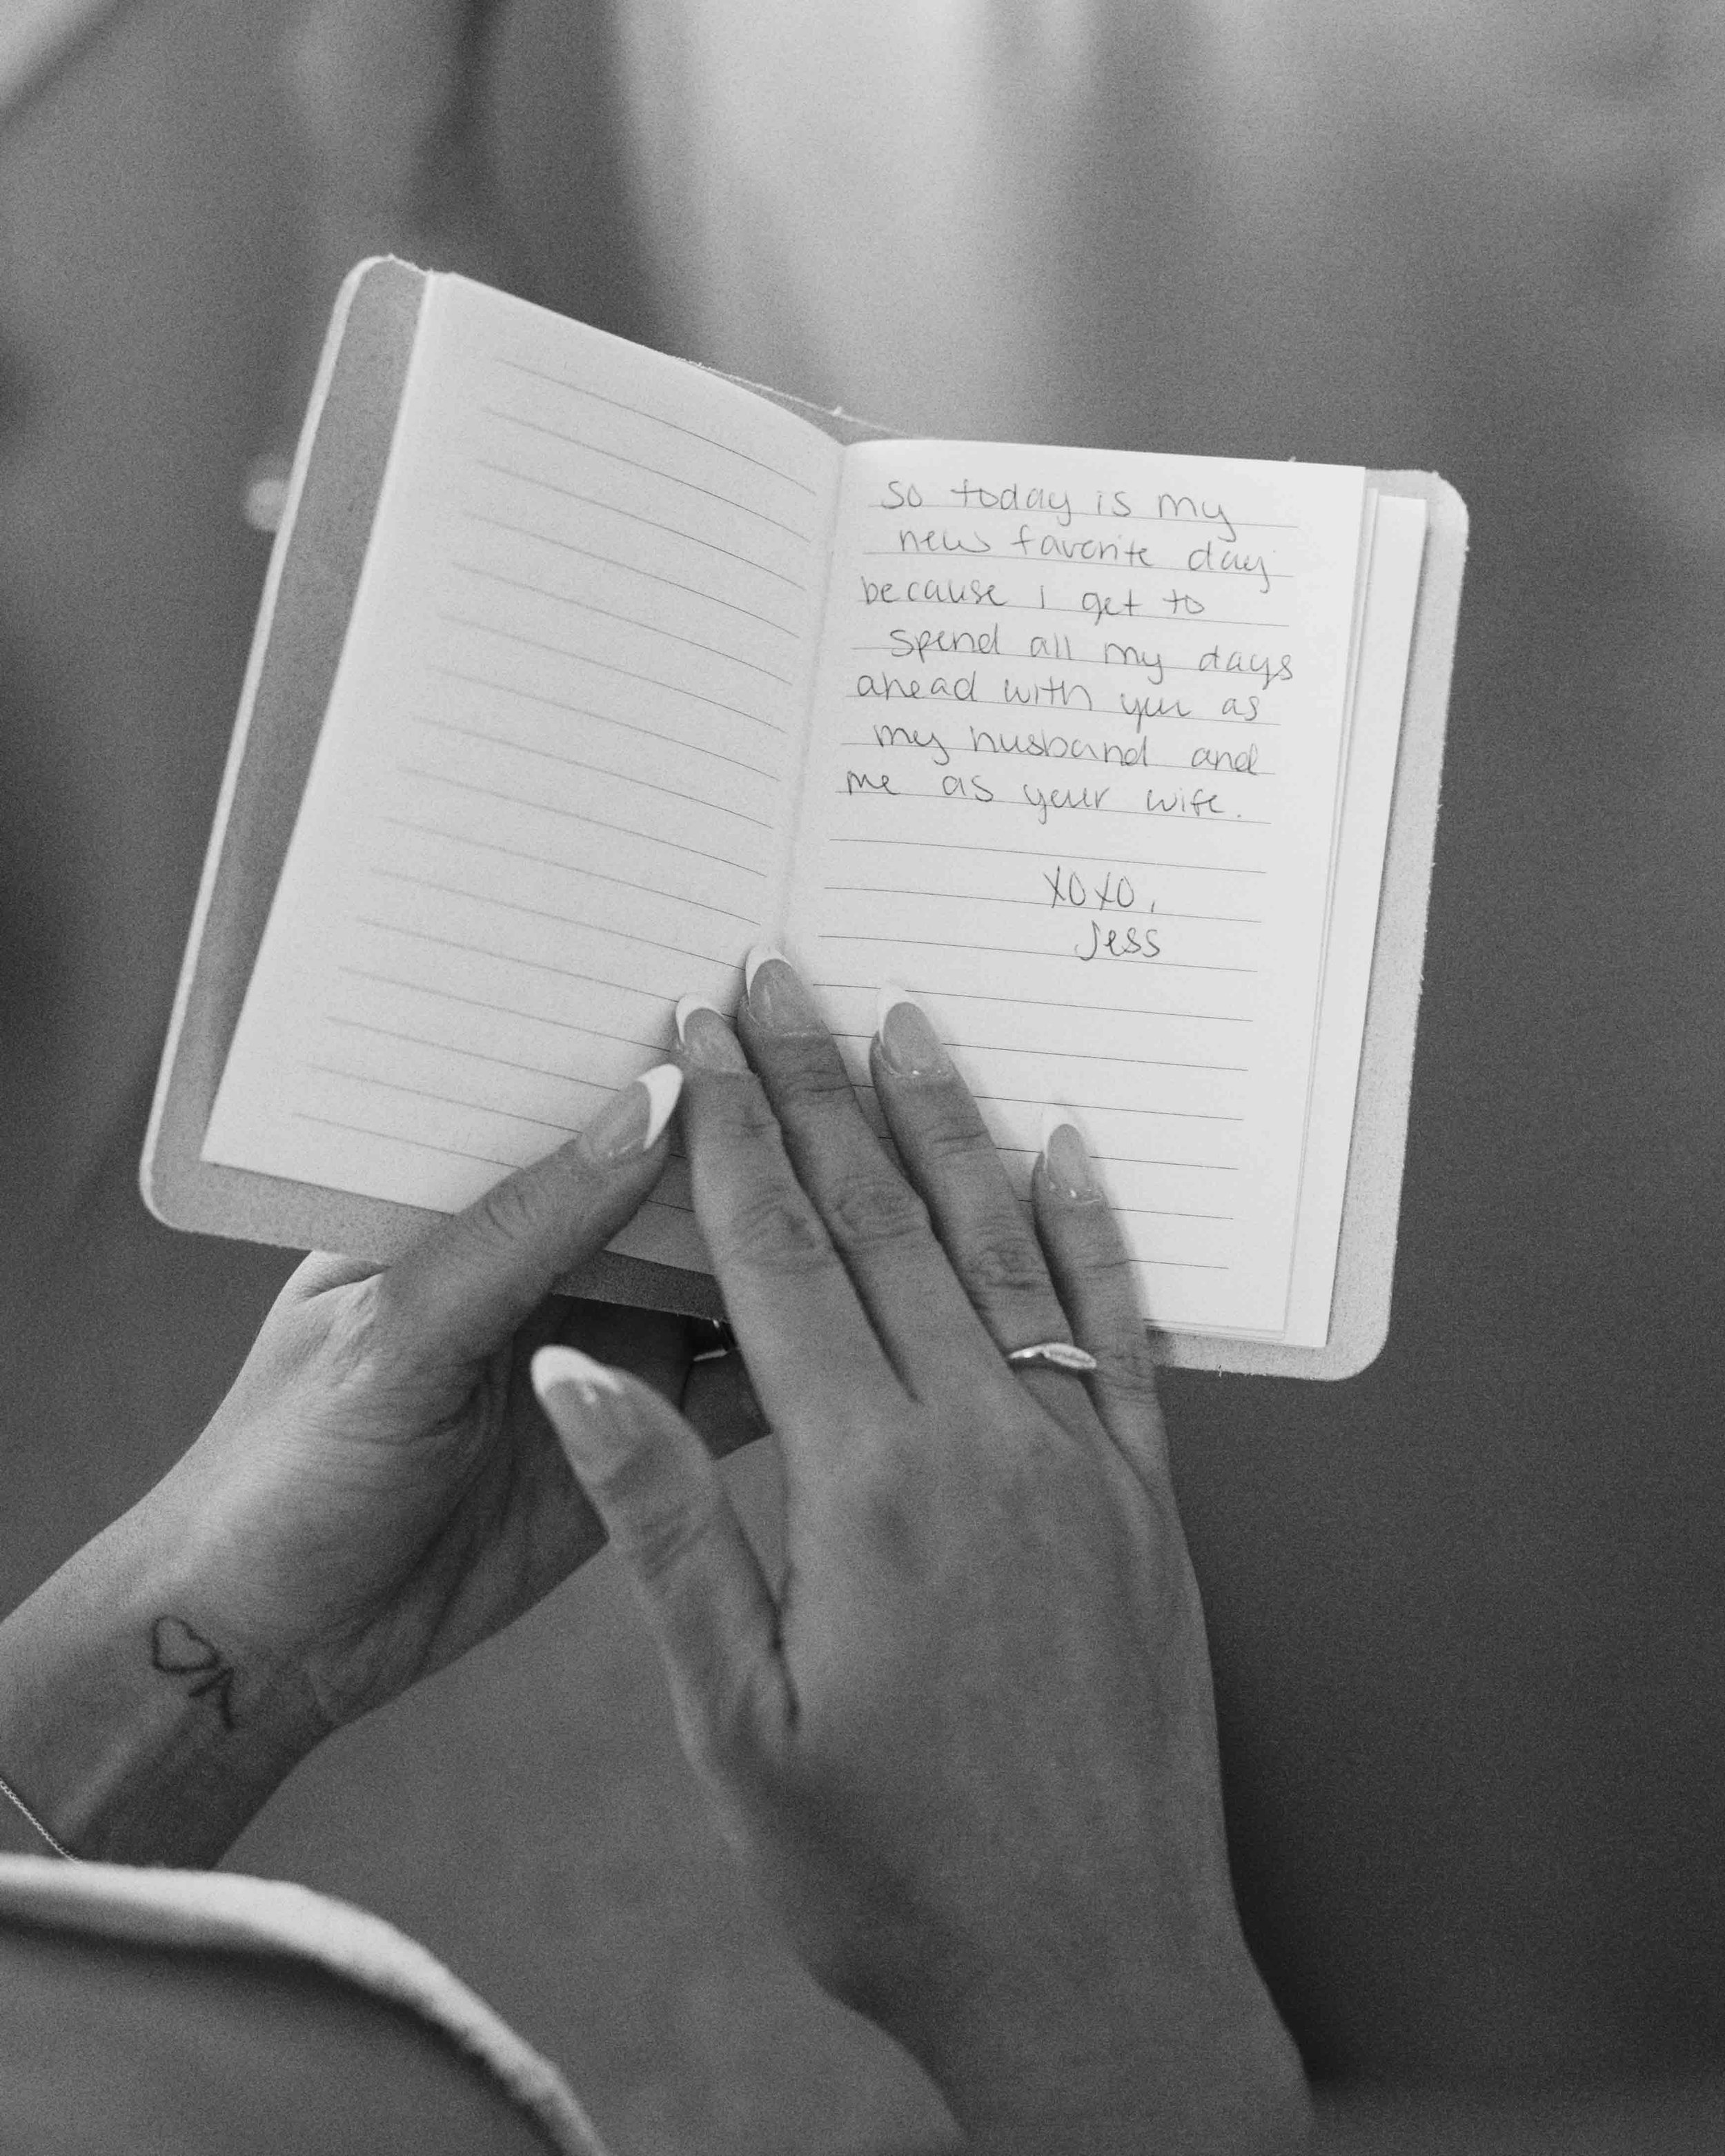 so today is my
new favorite day
because i get to
spend all my days
ahead with you as
my husband and
me as your wife.
XOXO,
Jess